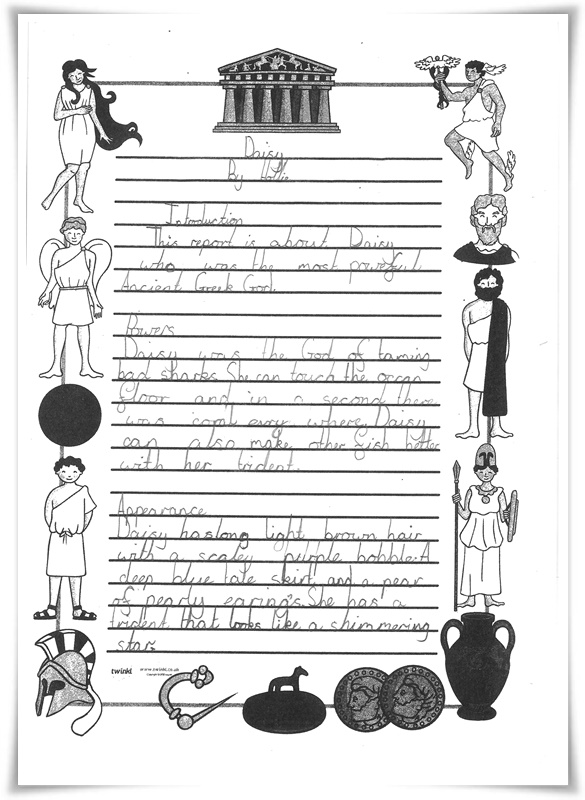 Daisy
By Hollie
Introduction
This report is about Daisy
who was the most powefull
Ancient Greek God.
Powers
Daisy was the God of taming
bad sharks. She can touch the ocean
floor and in a second there
was corel evry where. Daisy
can also make other fish better
with her trident.
Appearance
Daisy has long light brown hair
with a scaley purple bobble. A
deep blue tale skirt and a pear
of pearly earing's. She has a
trident that looks like a shimmering
star.
twinkl www.twinkl.co.uk